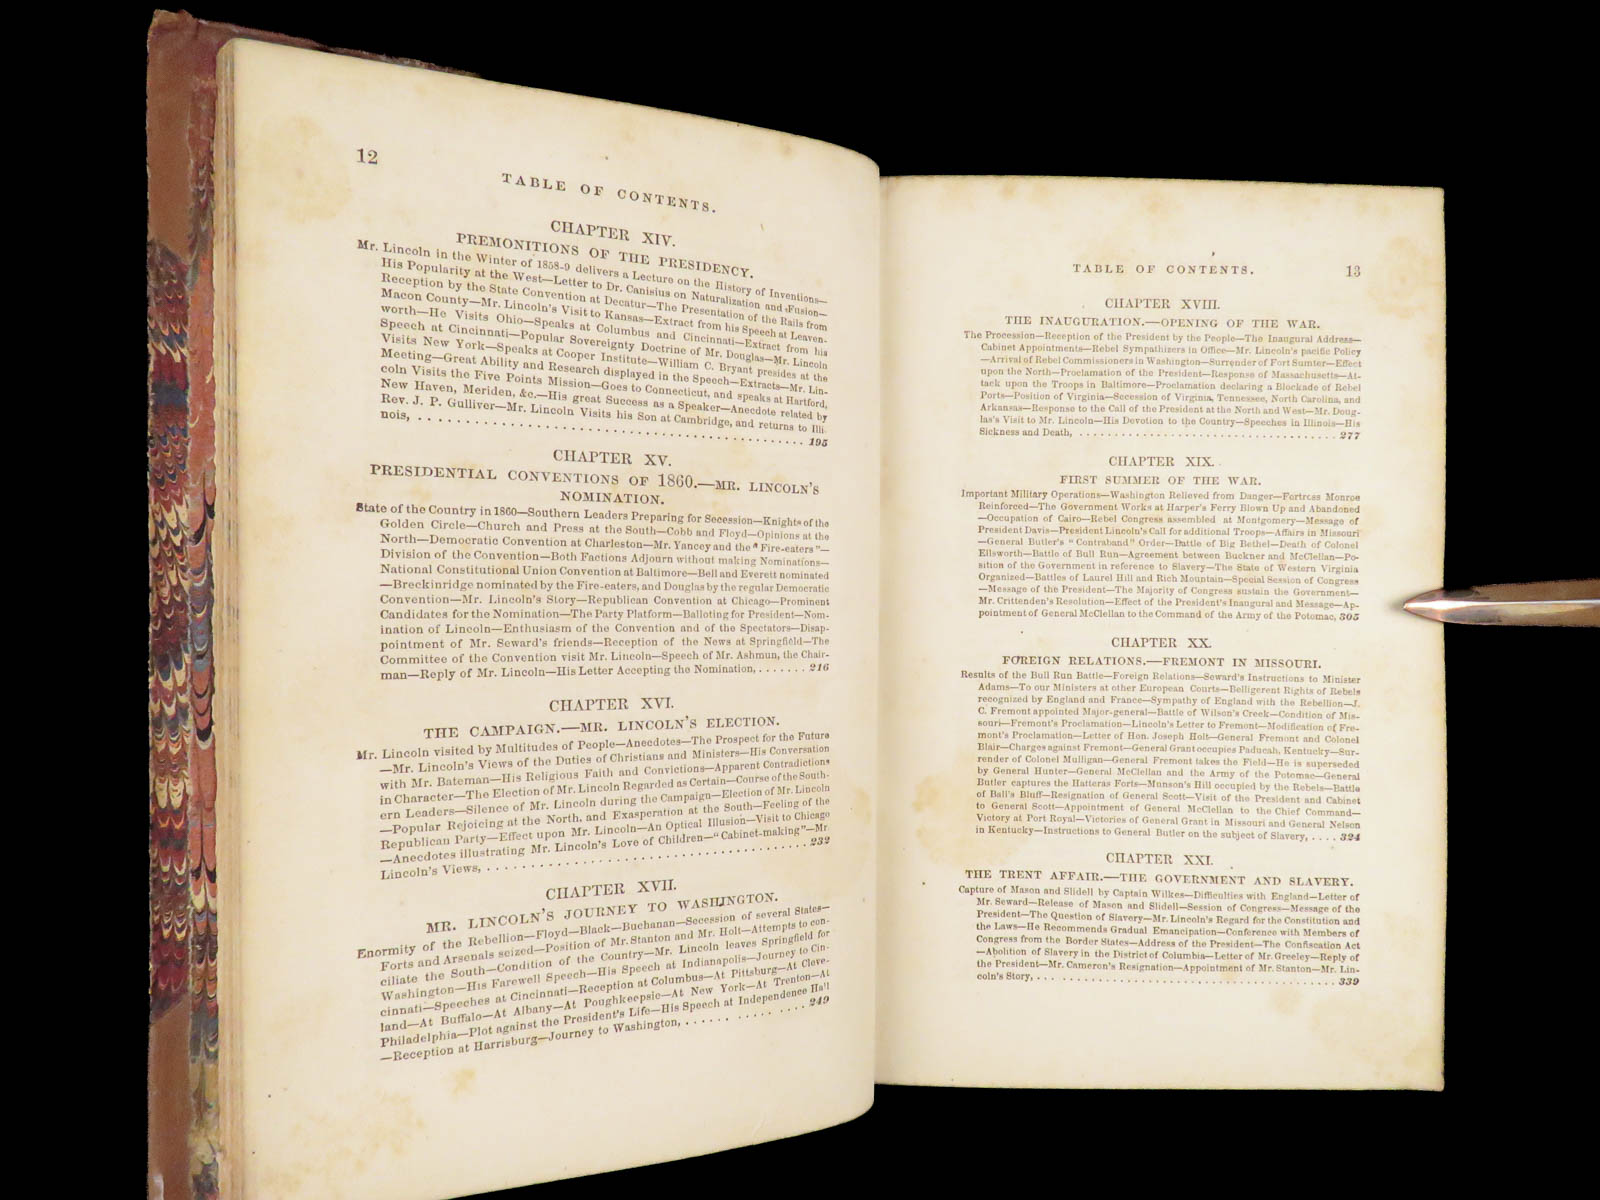 12
TABLE OF CONTENTS.
CHAPTER XIV.
PREMONITIONS OF THE PRESIDENCY.
Mr. Lincoln in the Winter of 1858-9 delivers a Lecture on the History of Inventions—
His Popularity at the West—Letter to Dr. Canisius on Naturalization and Fusion—
Reception by the State Convention at Decatur—The Presentation of the Rails from
Macon County—Mr. Lincoln's Visit to Kansas—Extract from his Speech at Leaven-
worth—He Visits Ohio—Speaks at Columbus and Cincinnati—Extract from his
Speech at Cincinnati—Popular Sovereignty Doctrine of Mr. Douglas—Mr. Lincoln
Visits New York—Speaks at Cooper Institute—William C. Bryant presides at the
Meeting—Great Ability and Research displayed in the Speech—Extracts—Mr. Lin-
coln Visits the Five Points Mission—Goes to Connecticut, and speaks at Hartford,
New Haven, Meriden, &c.—His great Success as a Speaker—Anecdote related by
Rev. J. P. Gulliver—Mr. Lincoln Visits his Son at Cambridge, and returns to Illi-
nois, . . . . . . . . . . . . . . . . . . . . 195
CHAPTER XV.
PRESIDENTIAL CONVENTIONS OF 1860.—MR. LINCOLN'S
NOMINATION.
State of the Country in 1860—Southern Leaders Preparing for Secession—Knights of the
Golden Circle—Church and Press at the South—Cobb and Floyd—Opinions at the
North—Democratic Convention at Charleston—Mr. Yancey and the "Fire-eaters"—
Division of the Convention—Both Factions Adjourn without making Nominations—
National Constitutional Union Convention at Baltimore—Bell and Everett nominated
—Breckinridge nominated by the Fire-eaters, and Douglas by the regular Democratic
Convention—Mr. Lincoln's Story—Republican Convention at Chicago—Prominent
Candidates for the Nomination—The Party Platform—Balloting for President—Nom-
ination of Lincoln—Enthusiasm of the Convention and of the Spectators—Disap-
pointment of Mr. Seward's friends—Reception of the News at Springfield—The
Committee of the Convention visit Mr. Lincoln—Speech of Mr. Ashmun, the Chair-
man—Reply of Mr. Lincoln—His Letter Accepting the Nomination, . . . . . . . 216
CHAPTER XVI.
THE CAMPAIGN.—MR. LINCOLN'S ELECTION.
Mr. Lincoln visited by Multitudes of People—Anecdotes—The Prospect for the Future
—Mr. Lincoln's Views of the Duties of Christians and Ministers—His Conversation
with Mr. Bateman—His Religious Faith and Convictions—Apparent Contradictions
in Character—The Election of Mr. Lincoln Regarded as Certain—Course of the South-
ern Leaders—Silence of Mr. Lincoln during the Campaign—Election of Mr. Lincoln
—Popular Rejoicing at the North, and Exasperation at the South—Feeling of the
Republican Party—Effect upon Mr. Lincoln—An Optical Illusion—Visit to Chicago
—Anecdotes illustrating Mr. Lincoln's Love of Children—"Cabinet-making"—Mr.
Lincoln's Views, . . . . . . . . . . . . . . . . . . . . 232
CHAPTER XVII.
MR. LINCOLN'S JOURNEY TO WASHINGTON.
Enormity of the Rebellion—Floyd—Black—Buchanan—Secession of several States—
Forts and Arsenals seized—Position of Mr. Stanton and Mr. Holt—Attempts to con-
ciliate the South—Condition of the Country—Mr. Lincoln leaves Springfield for
Washington—His Farewell Speech—His Speech at Indianapolis—Journey to Cin-
cinnati—Speeches at Cincinnati—Reception at Columbus—At Pittsburg—At Cleve-
land—At Buffalo—At Albany—At Poughkeepsie—At New York—At Trenton—At
Philadelphia—Plot against the President's Life—His Speech at Independence Hall
—Reception at Harrisburg—Journey to Washington, . . . . . . . . . . 249
TABLE OF CONTENTS. 13
CHAPTER XVIII.
THE INAUGURATION.—OPENING OF THE WAR.
The Procession—Reception of the President by the People—The Inaugural Address—
Cabinet Appointments—Rebel Sympathizers in Office—Mr. Lincoln's pacific Policy
—Arrival of Rebel Commissioners in Washington—Surrender of Fort Sumter—Effect
upon the North—Proclamation of the President—Response of Massachusetts—At-
tack upon the Troops in Baltimore—Proclamation declaring a Blockade of Rebel
Ports—Position of Virginia—Secession of Virginia, Tennessee, North Carolina, and
Arkansas—Response to the Call of the President at the North and West—Mr. Doug-
las's Visit to Mr. Lincoln—His Devotion to the Country—Speeches in Illinois—His
Sickness and Death, . . . . . . . . . . . . . . . . . . . . 277
CHAPTER XIX.
FIRST SUMMER OF THE WAR.
Important Military Operations—Washington Relieved from Danger—Fortress Monroe
Reinforced—The Government Works at Harper's Ferry Blown Up and Abandoned
—Occupation of Cairo—Rebel Congress assembled at Montgomery—Message of
President Davis—President Lincoln's Call for additional Troops—Affairs in Missouri
—General Butler's "Contraband" Order—Battle of Big Bethel—Death of Colonel
Ellsworth—Battle of Bull Run—Agreement between Buckner and McClellan—Po-
sition of the Government in reference to Slavery—The State of Western Virginia
Organized—Battles of Laurel Hill and Rich Mountain—Special Session of Congress
—Message of the President—The Majority of Congress sustain the Government—
Mr. Crittenden's Resolution—Effect of the President's Inaugural and Message—Ap-
pointment of General McClellan to the Command of the Army of the Potomac, 305
CHAPTER XX.
FOREIGN RELATIONS.—FREMONT IN MISSOURI.
Results of the Bull Run Battle—Foreign Relations—Seward's Instructions to Minister
Adams—To our Ministers at other European Courts—Belligerent Rights of Rebels
recognized by England and France—Sympathy of England with the Rebellion—J.
C. Fremont appointed Major-general—Battle of Wilson's Creek—Condition of Mis-
souri—Fremont's Proclamation—Lincoln's Letter to Fremont—Modification of Fre-
mont's Proclamation—Letter of Hon. Joseph Holt—General Fremont and Colonel
Blair—Charges against Fremont—General Grant occupies Paducah, Kentucky—Sur-
render of Colonel Mulligan—General Fremont takes the Field—He is superseded
by General Hunter—General McClellan and the Army of the Potomac—General
Butler captures the Hatteras Forts—Munson's Hill occupied by the Rebels—Battle
of Ball's Bluff—Resignation of General Scott—Visit of the President and Cabinet
to General Scott—Appointment of General McClellan to the Chief Command—
Victory at Port Royal—Victories of General Grant in Missouri and General Nelson
in Kentucky—Instructions to General Butler on the subject of Slavery, . . . . 324
CHAPTER XXI.
THE TRENT AFFAIR.—THE GOVERNMENT AND SLAVERY.
Capture of Mason and Slidell by Captain Wilkes—Difficulties with England—Letter of
Mr. Seward—Release of Mason and Slidell—Session of Congress—Message of the
President—The Question of Slavery—Mr. Lincoln's Regard for the Constitution and
the Laws—He Recommends Gradual Emancipation—Conference with Members of
Congress from the Border States—Address of the President—The Confiscation Act
—Abolition of Slavery in the District of Columbia—Letter of Mr. Greeley—Reply of
the President—Mr. Cameron's Resignation—Appointment of Mr. Stanton—Mr. Lin-
coln's Story, . . . . . . . . . . . . . . . . . . . . 339